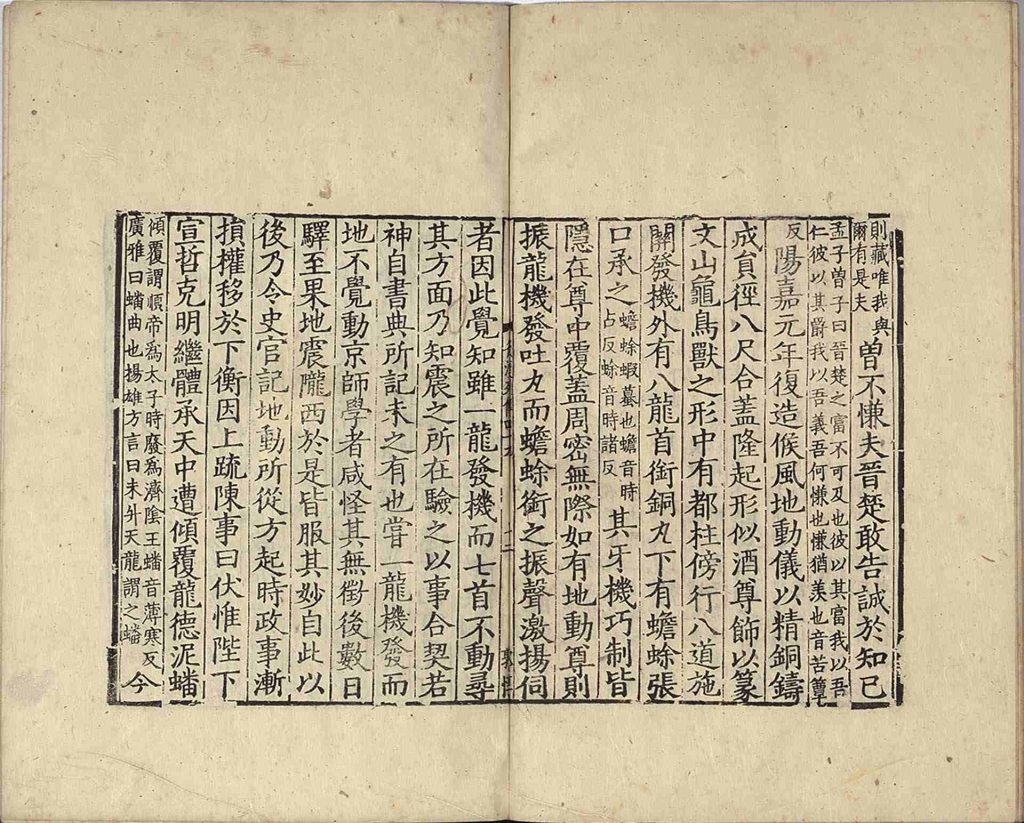 則藏唯我與爾有是夫曽不慊夫晉楚敢告誠於知已
孟子曽子曰晉楚之富不可及也彼以其富我以吾
仁彼以其爵我以吾義吾何慊也慊猶羡也音苦簟
反陽嘉元年復造候風地動儀以精銅鑄
成貟徑八尺合蓋隆起形似酒尊飾以篆
文山龜鳥獸之形中有都柱傍行八道施
關發機外有八龍首銜銅丸下有蟾蜍張
口承之蟾蜍蝦蟇也蟾音時占反蜍音時諸反其牙機巧制皆
隱在尊中覆蓋周密無際如有地動尊則
振龍機發吐丸而蟾蜍銜之振聲激揚伺
者因此覺知雖一龍發機而七首不動尋
其方面乃知震之所在驗之以事合契若
神自書典所記未之有也嘗一龍機發而
地不覺動京師學者咸怪其無徵後數日
驛至果地震隴西於是皆服其妙自此以
後乃令史官記地動所從方起時政事漸
損權移於下衡因上疏陳事曰伏惟陛下
宣哲克明繼體承天中遭傾覆龍德泥蟠
傾覆謂順帝爲太子時廢爲濟隂王蟠音薄寒反
廣雅曰蟠曲也揚雄方言曰未升天龍謂之蟠今